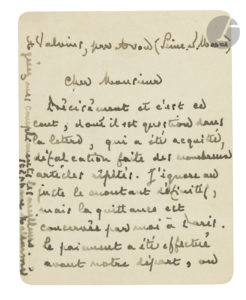 Valvins, par Avon (Seine-&-Marne)
Cher Monsieur
Précisément et c'est ce
cent, dont il est question dans
la lettre, qui a été acquitté,
défalcation faite des nombreux
articles répétés. J'ignore au
juste le montant définitif,
mais la quittance est
conservée par moi à Paris.
Le paiement a été effectué
avant notre départ, ou